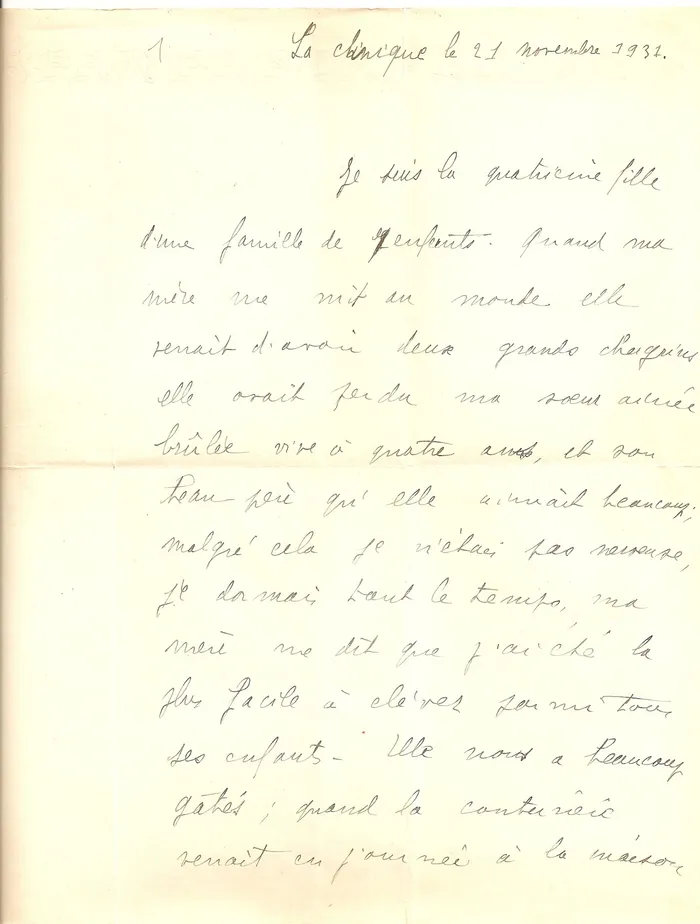 1
La clinique le 21 novembre 1931.
Je suis la quatrième fille
d'une famille de 7 enfants. Quand ma
mère me mit au monde elle
venait d'avoir deux grands chagrins
elle avait perdu ma sœur aînée
brûlée vive à quatre ans, et son
beau père qu'elle aimait beaucoup;
malgré cela je n'étais pas nerveuse,
je dormais tout le temps, ma
mère me dit que j'ai été la
plus facile à élever parmi tous
ses enfants - Elle nous a beaucoup
gâtés ; quand la couturière
venait en journée à la maison